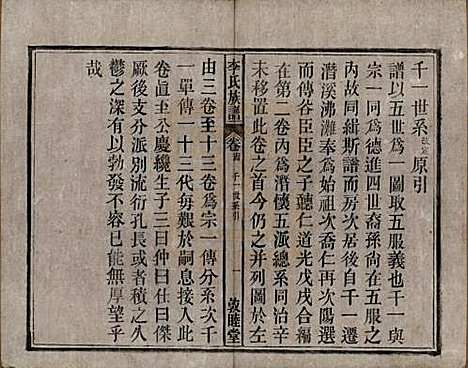 千一世系改定原引
譜以五世爲一圖取五服義也千一與
宗一同爲德進四世裔孫尚在五服之
內故同緝斯譜而房次居後自千一遷
潛溪沸灘奉爲始祖次喬仁再次陽選
而傳谷臣臣之子聽仁道光戊戌合編
在第二卷內爲潛懷五派總系同治辛
未移置此卷之首今仍之并列圖於左
李氏族譜
卷
千一世系引
一
敦睦堂
由三卷至十三卷爲宗一傳分系次千
一單傳一十三代毎艱於嗣息接入此
卷眞至公慶纔生子三曰仲曰仕曰傑
厥後支分派別流衍孔長或者積之久
鬱之深有以勃發不容已無厚望乎
哉